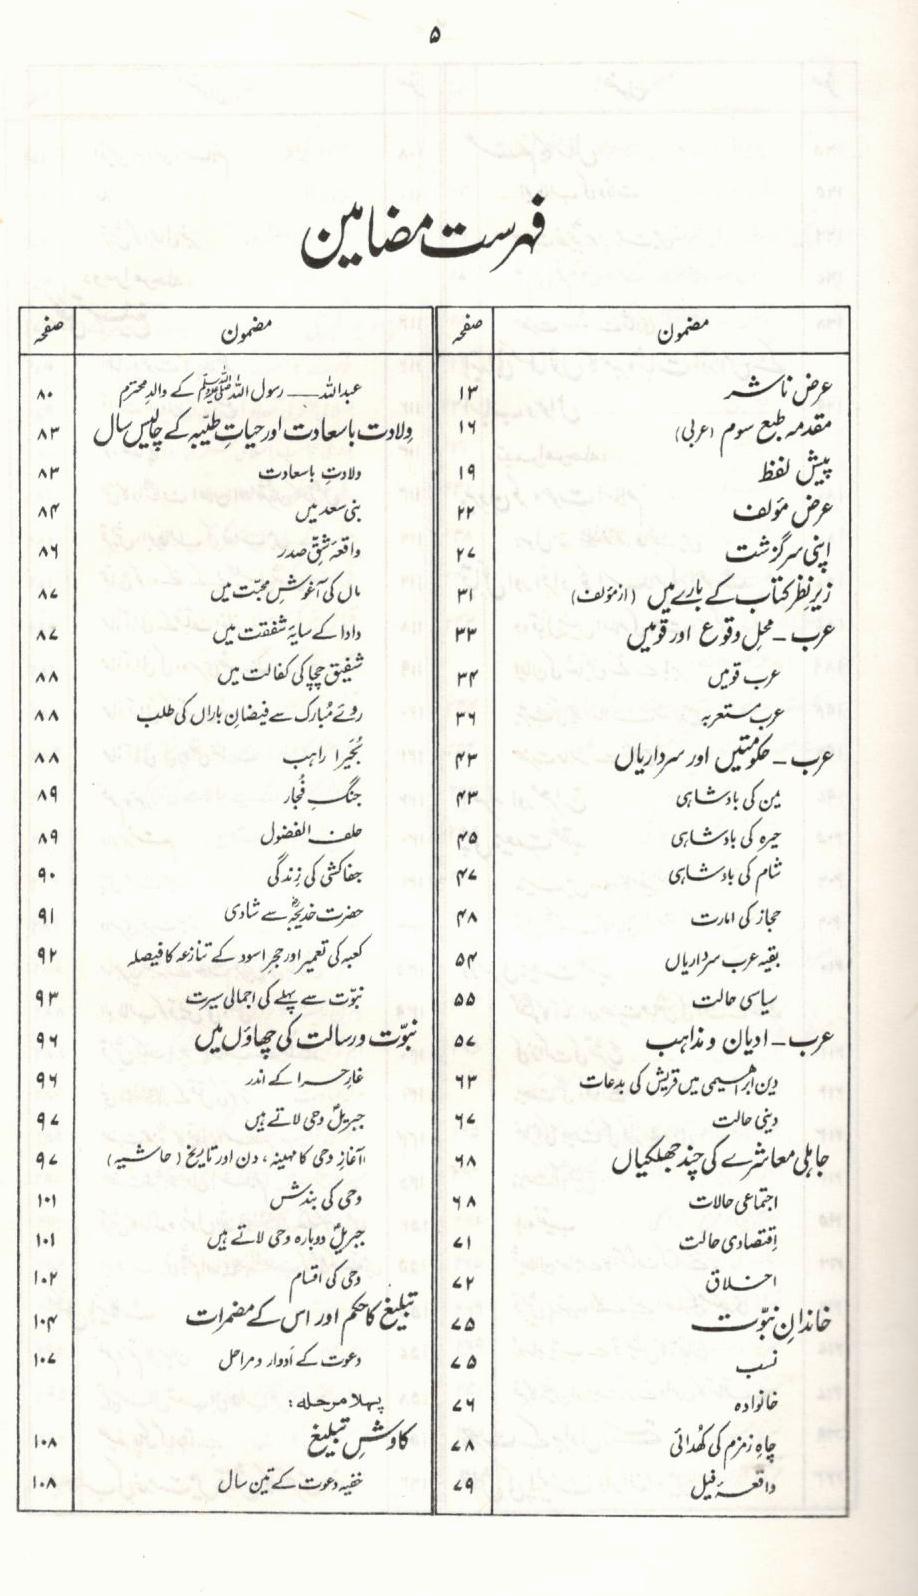 ۵
فہرست مضامین
مضمون صفحہ
عرض ناشر ۱۳
مقدمہ طبع سوم (عربی) ۱۶
پیش لفظ ۱۹
عرض مؤلف ۲۲
اپنی سرگزشت ۲۷
زیرِ نظر کتاب کے بارے میں (از مؤلف) ۳۱
عرب - محلِ وقوع اور قومیں ۳۳
عرب قومیں ۳۴
عرب مستعربہ ۳۶
عرب - حکومتیں اور سرداریاں ۴۳
یمن کی بادشاہی ۴۳
حیرہ کی بادشاہی ۴۵
شام کی بادشاہی ۴۷
حجاز کی امارت ۴۸
بقیہ عرب سرداریاں ۵۴
سیاسی حالت ۵۵
عرب - ادیان و مذاہب ۵۷
دین ابراہیمی میں قریش کی بدعات ۶۳
دینی حالت ۶۷
جاہلی معاشرے کی چند جھلکیاں ۶۸
اجتماعی حالات ۶۸
اِقتصادی حالت ۷۱
اخلاق ۷۲
خاندانِ نبوّت ۷۵
نسب ۷۵
خانوادہ ۷۶
چاہِ زمزم کی کھُدائی ۷۸
واقعۂ فیل ۷۹
مضمون صفحہ
عبداللہ ــــ رسول اللہ ﷺ کے والدِ محترم ۸۰
وِلادت باسعادت اور حیاتِ طیّبہ کے چالیس سال ۸۳
ولادتِ باسعادت ۸۳
بنی سعد میں ۸۴
واقعۂ شقِّ صدر ۸۶
ماں کی آغوشِ محبّت میں ۸۷
دادا کے سایۂ شفقت میں ۸۷
شفیق چچا کی کفالت میں ۸۸
روئے مُبارک سے فیضانِ باراں کی طلب ۸۸
بُحَیرا راہب ۸۸
جنگِ فُجار ۸۹
حلف الفضول ۸۹
جفاکشی کی زندگی ۹۰
حضرت خدیجہؓ سے شادی ۹۱
کعبہ کی تعمیر اور حجرِ اسود کے تنازعہ کا فیصلہ ۹۲
نبوّت سے پہلے کی اجمالی سیرت ۹۳
نبوّت و رسالت کی چھاؤں میں ۹۶
غارِ حرا کے اندر ۹۶
جبریلؑ وحی لاتے ہیں ۹۷
آغازِ وحی کا مہینہ، دن اور تاریخ (حاشیہ) ۹۷
وحی کی بندش ۱۰۱
جبریلؑ دوبارہ وحی لاتے ہیں ۱۰۱
وحی کی اقسام ۱۰۲
تبلیغ کا حکم اور اس کے مضمرات ۱۰۴
دعوت کے اَدوار و مراحل ۱۰۷
پہلا مرحلہ:
کاوشِ تبلیغ ۱۰۸
خفیہ دعوت کے تین سال ۱۰۸